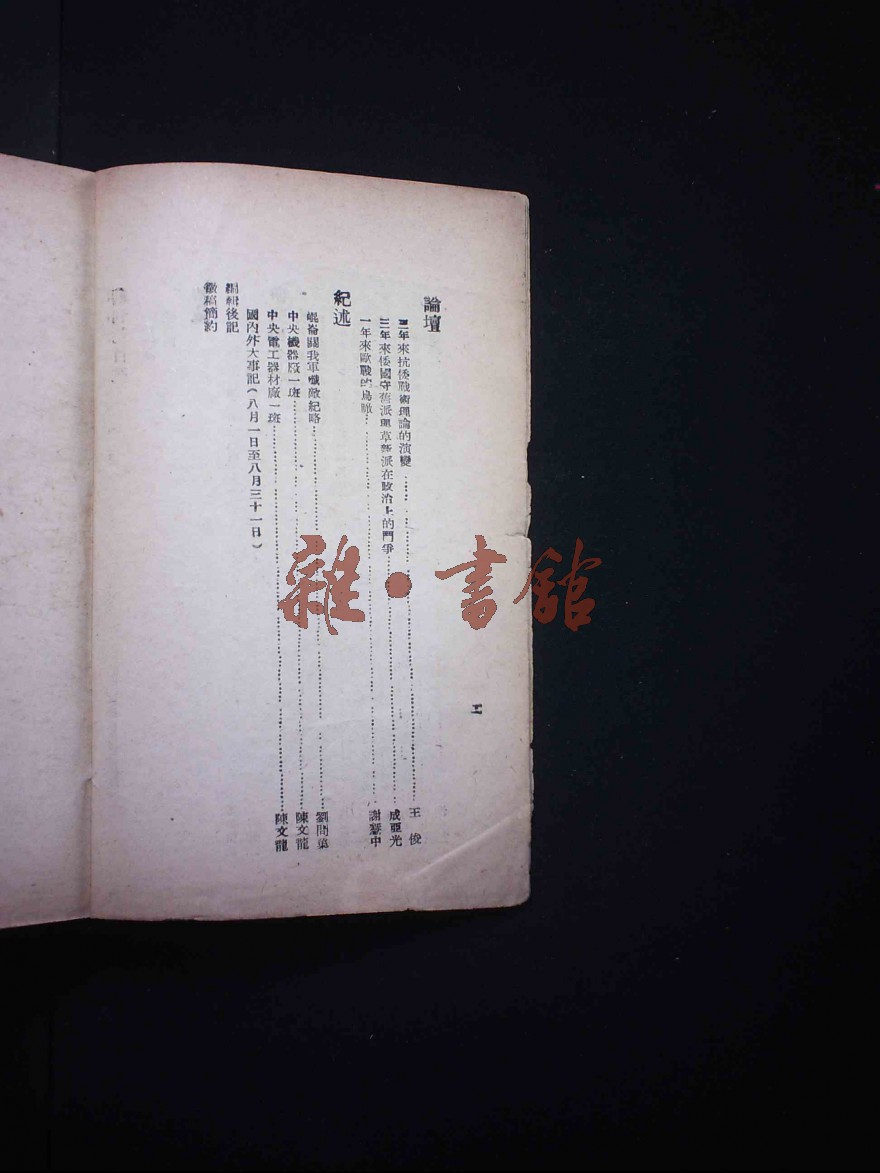 論壇
三年來抗倭戰術理論的演變……王 俊
三年來倭國守舊派與革新派在政治上的鬥爭……成亞光
一年來歐戰的鳥瞰……謝 中
紀述
崐崙關我軍殲敵紀略……劉問
中央機器廠一班……陳文龍
中央電工器材廠一班……陳文龍
國內外大事記(八月一日至八月三十一日)
編輯後記
徵稿簡約
雜·書館